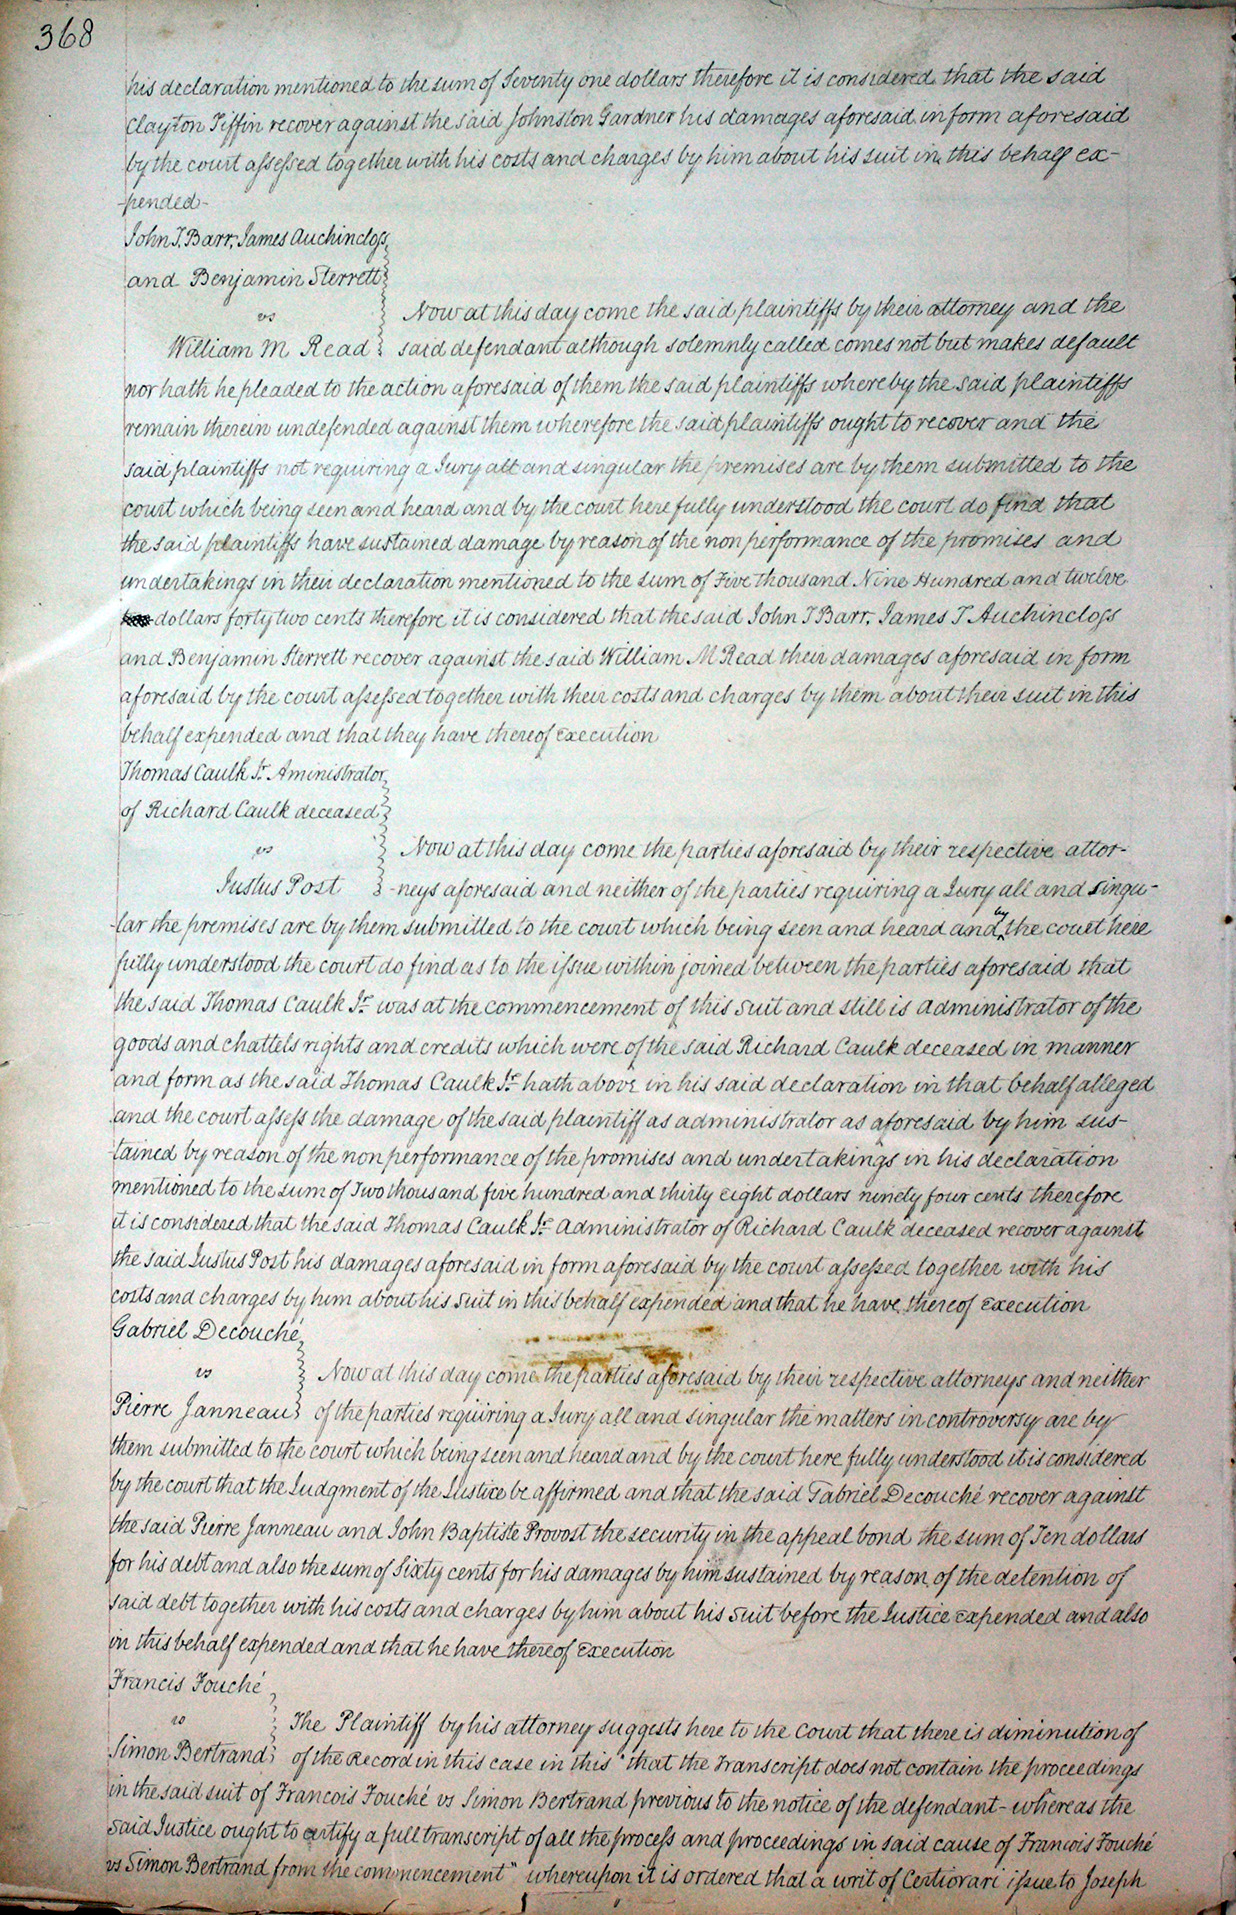 368
his declaration mentioned to the sum of Seventy one dollars therefore it is considered that the said
Clayton Tiffin recover against the said Johnston Gardner his damages aforesaid in form aforesaid
by the court assessed together with his costs and charges by him about his suit in this behalf ex-
-pended-
John T. Barr, James Auchincloss
and Benjamin Sterrett
vs
Now at this day come the said plaintiffs by their attorney and the
William M Read said defendant although solemnly called comes not but makes default
nor hath he pleaded to the action aforesaid of them the said plaintiffs whereby the said plaintiffs
remain therein undefended against them wherefore the said plaintiffs ought to recover and the
said plaintiffs not requiring a Jury all and singular the premises are by them submitted to the
court which being seen and heard and by the court here fully understood the court do find that
the said plaintiffs have sustained damage by reason of the non performance of the promises and
undertakings in their declaration mentioned to the sum of Five thousand Nine Hundred and twelve
dollars forty two cents therefore it is considered that the said John T Barr, James T Auchincloss
and Benjamin Sterrett recover against the said William M Read their damages aforesaid in form
aforesaid by the court assessed together with their costs and charges by them about their suit in this
behalf expended and that they have thereof Execution
Thomas Caulk Jr. Aministrator
of Richard Caulk deceased
vs
Now at this day come the parties aforesaid by their respective attor-
Justus Post -neys aforesaid and neither of the parties requiring a Jury all and singu-
-lar the premises are by them submitted to the court which being seen and heard and by the court here
fully understood the court do find as to the issue within joined between the parties aforesaid that
the said Thomas Caulk Jr. was at the commencement of this suit and still is administrator of the
goods and chattels rights and credits which were of the said Richard Caulk deceased in manner
and form as the said Thomas Caulk Jr. hath above in his said declaration in that behalf alleged
and the court assess the damage of the said plaintiff as administrator as aforesaid by him sus-
-tained by reason of the non performance of the promises and undertakings in his declaration
mentioned to the sum of Two thousand five hundred and thirty eight dollars ninety four cents therefore
it is considered that the said Thomas Caulk Jr. Administrator of Richard Caulk deceased recover against
the said Justus Post his damages aforesaid in form aforesaid by the court assessed together with his
costs and charges by him about his suit in this behalf expended and that he have thereof Execution
Gabriel Decouché
vs Now at this day come the parties aforesaid by their respective attorneys and neither
Pierre Janneau of the parties requiring a Jury all and singular the matters in controversy are by
them submitted to the court which being seen and heard and by the court here fully understood it is considered
by the court that the Judgment of the Justice be affirmed and that the said Gabriel Decouché recover against
the said Pierre Janneau and John Baptiste Provost the security in the appeal bond the sum of Ten dollars
for his debt and also the sum of Sixty cents for his damages by him sustained by reason of the detention of
said debt together with his costs and charges by him about his suit before the Justice Expended and also
in this behalf expended and that he have thereof Execution
Francis Fouché
vs The Plaintiff by his attorney suggests here to the Court that there is diminution of
Simon Bertrand of the Record in this case in this "that the Transcript does not contain the proceedings
in the said suit of Francois Fouché vs Simon Bertrand previous to the notice of the defendant - whereas the
said Justice ought to certify a full transcript of all the process and proceedings in said cause of Francois Fouché
vs Simon Bertrand from the commencement" whereupon it is ordered that a writ of Certiorari issue to Joseph